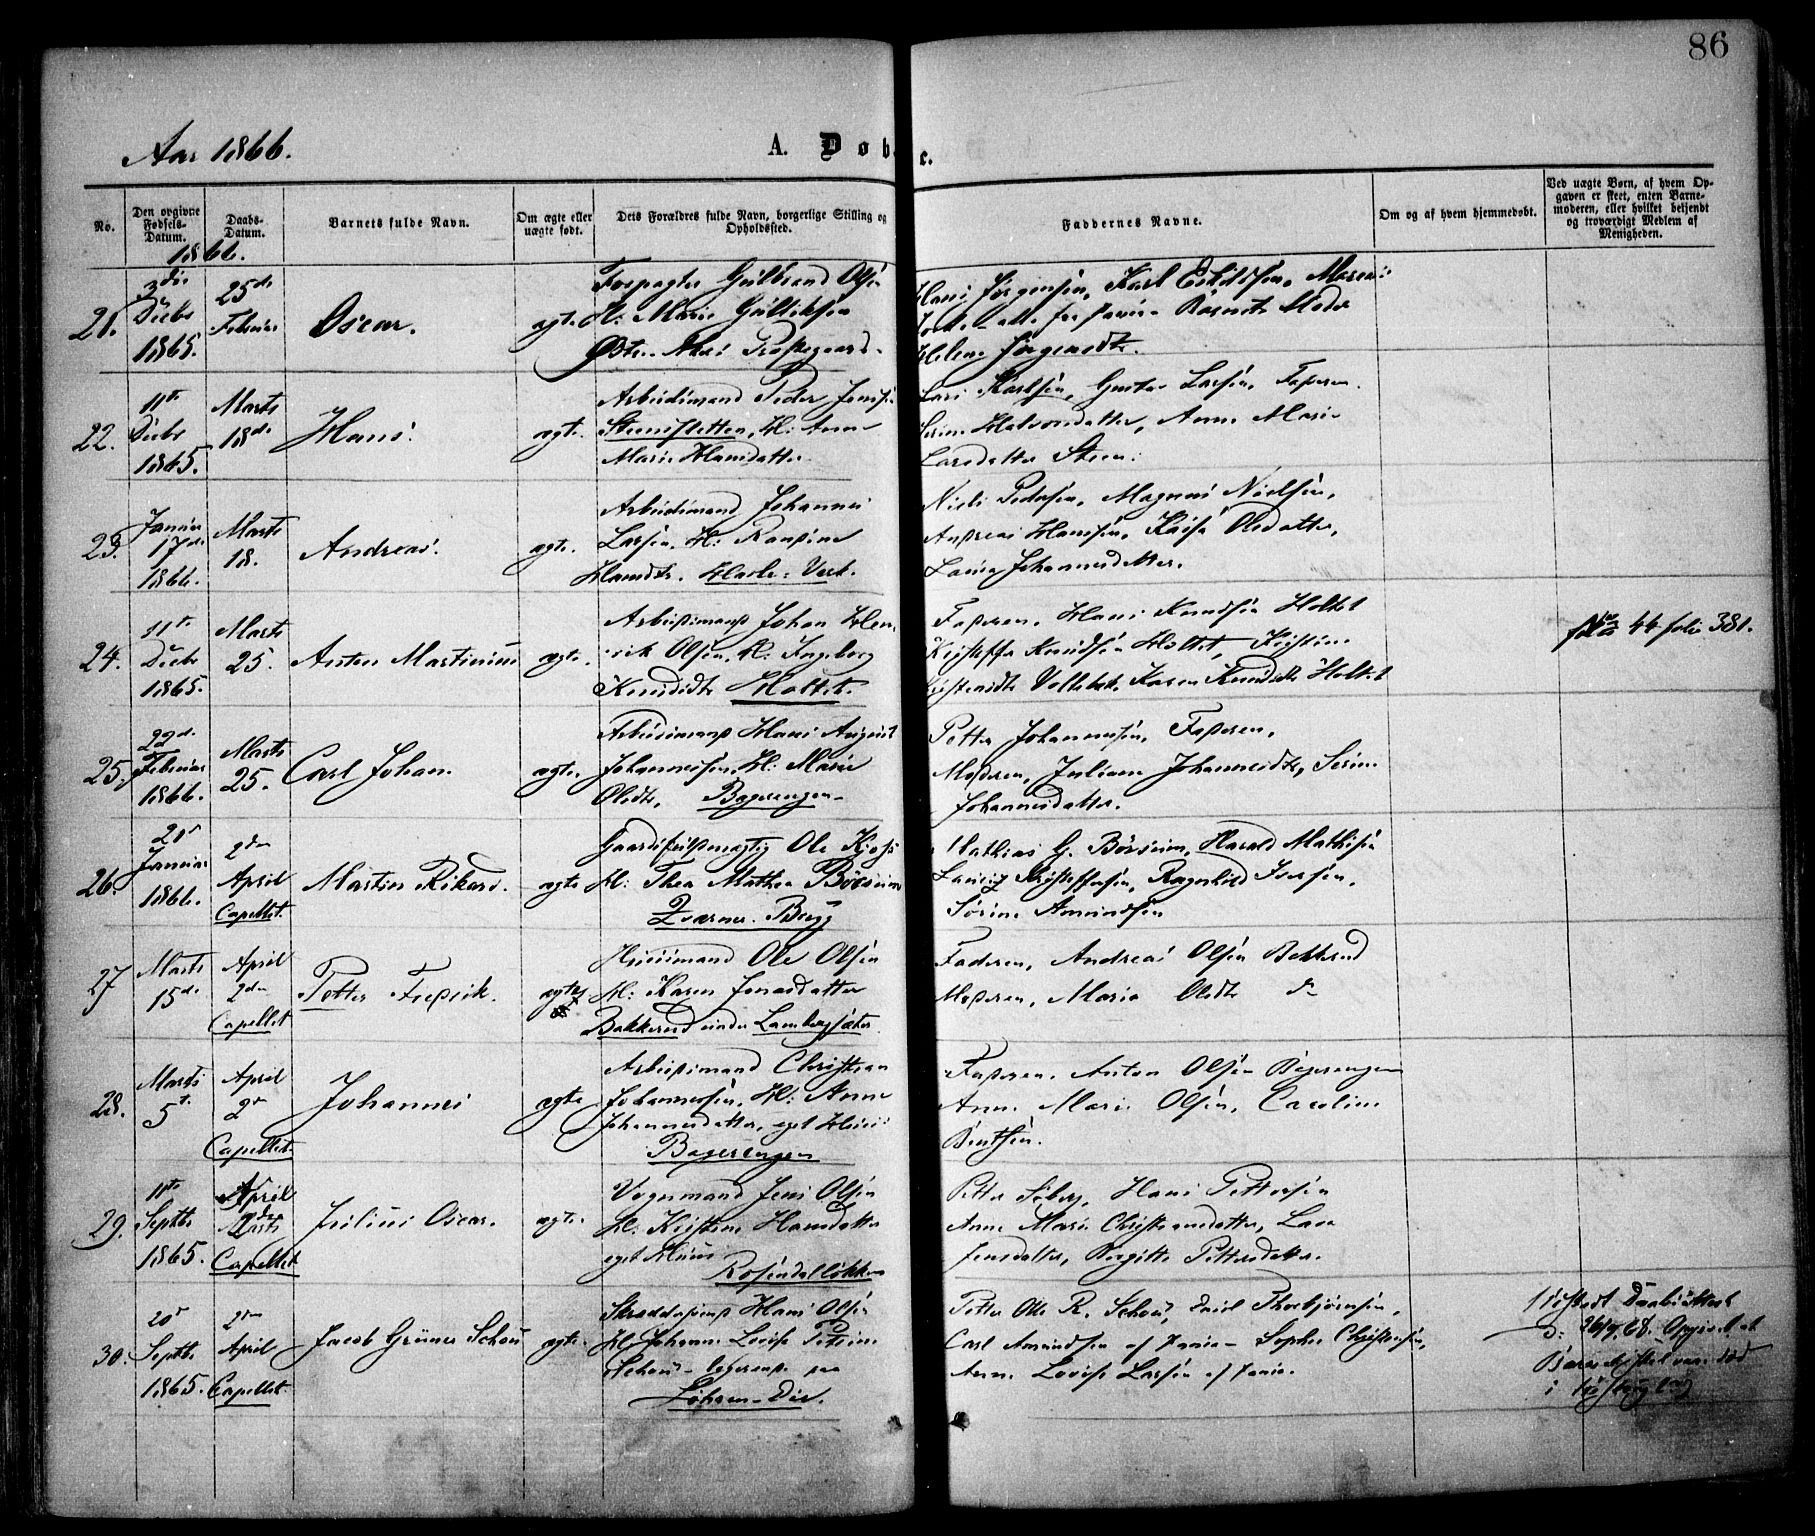 86
Aar 1866.
A. Døbte.
No.
Den opgivne Fødsels-Datum.
Daabs-Datum.
Barnets fulde Navn.
Om ægte eller uægte født.
Dets Forældres fulde Navn, borgerlige Stilling og Opholdssted.
Faddernes Navne.
Om og af hvem hjemmedøbt.
Ved uægte Børn, af hvem Opgaven er skeet, enten Barnemoderen, eller hvilket beljendt og troværdigt Medlem af Menigheden.
1866.
21.
3die Decbr 1865.
25de Februar
Oscar.
ægte.
Forpagter Gulbrand Olsen
H: Marie Gulliksen
Østre Præstegaard
Hans Jørgensen, Karl Eskildsen, Maren
Barnets Moder
Helene Jørgensdtr.
22.
11te Decbr 1865.
Marts 18de
Hans.
ægte.
Arbeidsmand Peder Jensen
Steensletten, H: Anne
Marie Hansdatter
Lars Karlsen, Gustav Larsen, Faderen
Serine Halvorsdatter, Anne Marie
Larsdatter Steen.
23.
Januar 17de 1866.
Marts 18.
Andreas.
ægte.
Arbeidsmand Johannes
Larsen, H:
Hansdtr. Værk.
Niels Pedersen, Magnus Nielsen,
Andreas Hansen, Kaisa Olsdatter,
Lovise Johannesdatter.
24.
11te Decbr 1865.
Marts 25.
Anton Martinius
ægte.
Arbeidsmand Johan Hen-
rik Olsen, H: Ingeborg
Knudsdtr Holtet.
Faderen, Hans Knudsen Holtet
Kristoffer Knudsen Holtet, Kristine
Karen Knudsdtr Holtet
44 folio 381.
25.
22de Februar 1866.
Marts 25.
Carl Johan
ægte.
Arbeidsmand Hans August
Johannesen, H: Marie
Olsdtr, Bagerengen
Petter Johannesen, Faderen,
Moderen, Juliane Johannesdtr, Serine
Johannesdatter.
26.
20de Januar 1866.
2den April Capellet.
Martin Rikard.
ægte
Ole
H: Thea Mathea Børsum
Qværner Brug
Mathias G. Børsum, Harald Mathisen
Kristoffersen, Ragnhild Iversen,
Sørine Amundsen
27
Marts 15de
April 2den Capellet
Petter Fredrik.
ægte
Huusmand Ole Olsen
H: Karen Jensdatter
Bakkerud under Lambertsæter
Faderen, Andreas Olsen Bakkerud
Moderen, Maria Olsdtr do
28.
Marts 5te
April 2de Capellet
Johannes
ægte
Arbeidsmand Christian
Johannesen, H: Anne
Johannesdatter, eget Huus
Bagerengen
Faderen. Anton Olsen Bagerengen
Anne Marie Olsen, Caroline
Bentsen.
29.
11te Septbr 1865.
April 2den Marts Capellet
Julius Oscar.
ægte.
Vognmand Jens Olsen
H: Kristine Hansdatter
eget Huus
Rosendalløkken
Petter Søberg, Hans Pettersen
Anne Marie Christiansdatter, Lava
Jensdatter, Birgitte Pettersdatter.
30.
20de Septbr 1865.
2den April Capellet.
Jacob Grüner Schou
ægte.
Skræddersvend Hans Olsen
H: Johanne Lovise
Schou
Petter Ole R. Schou, Thorbjørnsen,
Carl Amundsen af Sophie Christensen,
Anne Lovise Larsen af
26/9 68.